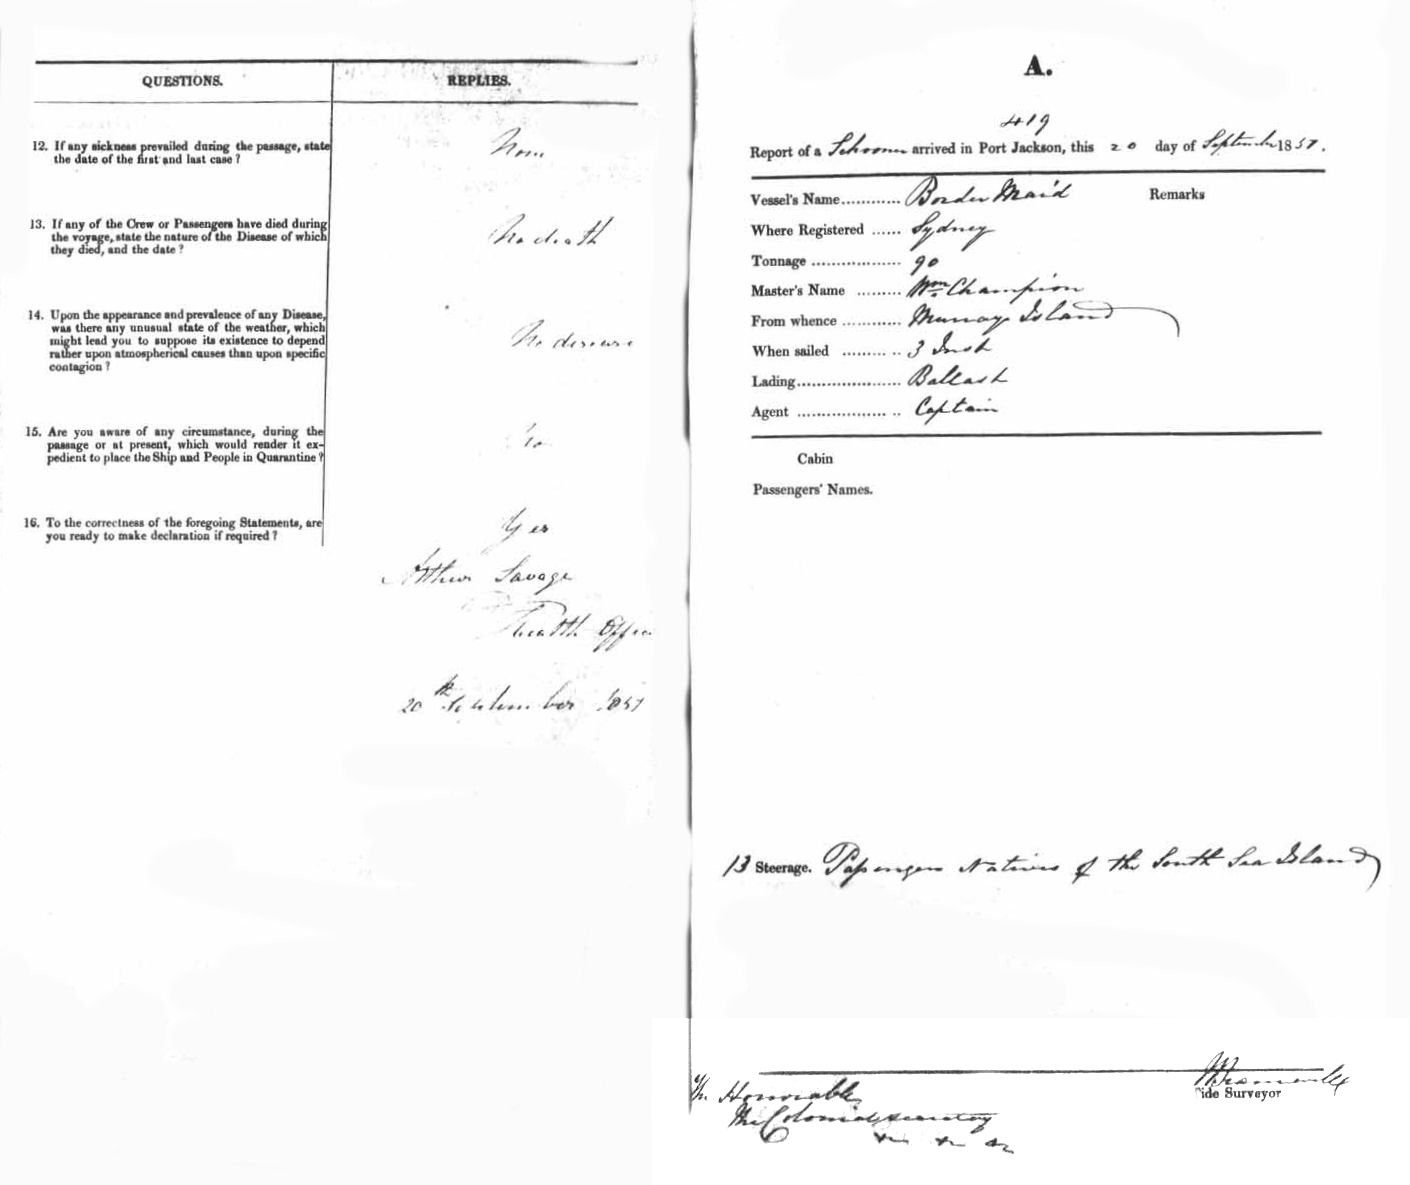 QUESTIONS.
REPLIES.
12. If any sickness prevailed during the passage, state
the date of the first and last case ?
None
13. If any of the Crew or Passengers have died during
the voyage, state the nature of the Disease of which
they died, and the date ?
No death
14. Upon the appearance and prevalence of any Disease,
was there any unusual state of the weather, which
might lead you to suppose its existence to depend
rather upon atmospherical causes than upon specific
contagion ?
No disease
15. Are you aware of any circumstance, during the
passage or at present, which would render it ex-
pedient to place the Ship and People in Quarantine ?
No
16. To the correctness of the foregoing Statements, are
you ready to make declaration if required ?
Yes
Arthur Savage
Health Officer
20th September 1857
A.
419
Report of a Schooner arrived in Port Jackson, this 20 day of September 1857.
Vessel's Name............ Border Maid
Remarks
Where Registered ...... Sydney
Tonnage .................. 90
Master's Name ......... Wm Champion
From whence ............ Murray Island
When sailed ......... .. 3 Inst
Lading..................... Ballast
Agent .................. .. Captain
Cabin
Passengers' Names.
13 Steerage. Passengers Natives of the South Sea Island
ide Surveyor
The Honorable
The Colonial Secretary